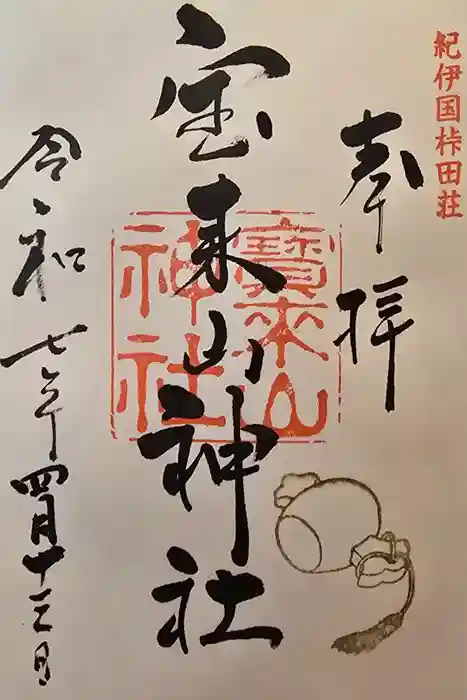 紀伊国桛田荘
奉拝
宝来山神社
寳来山
神社
令和七年四月十三日